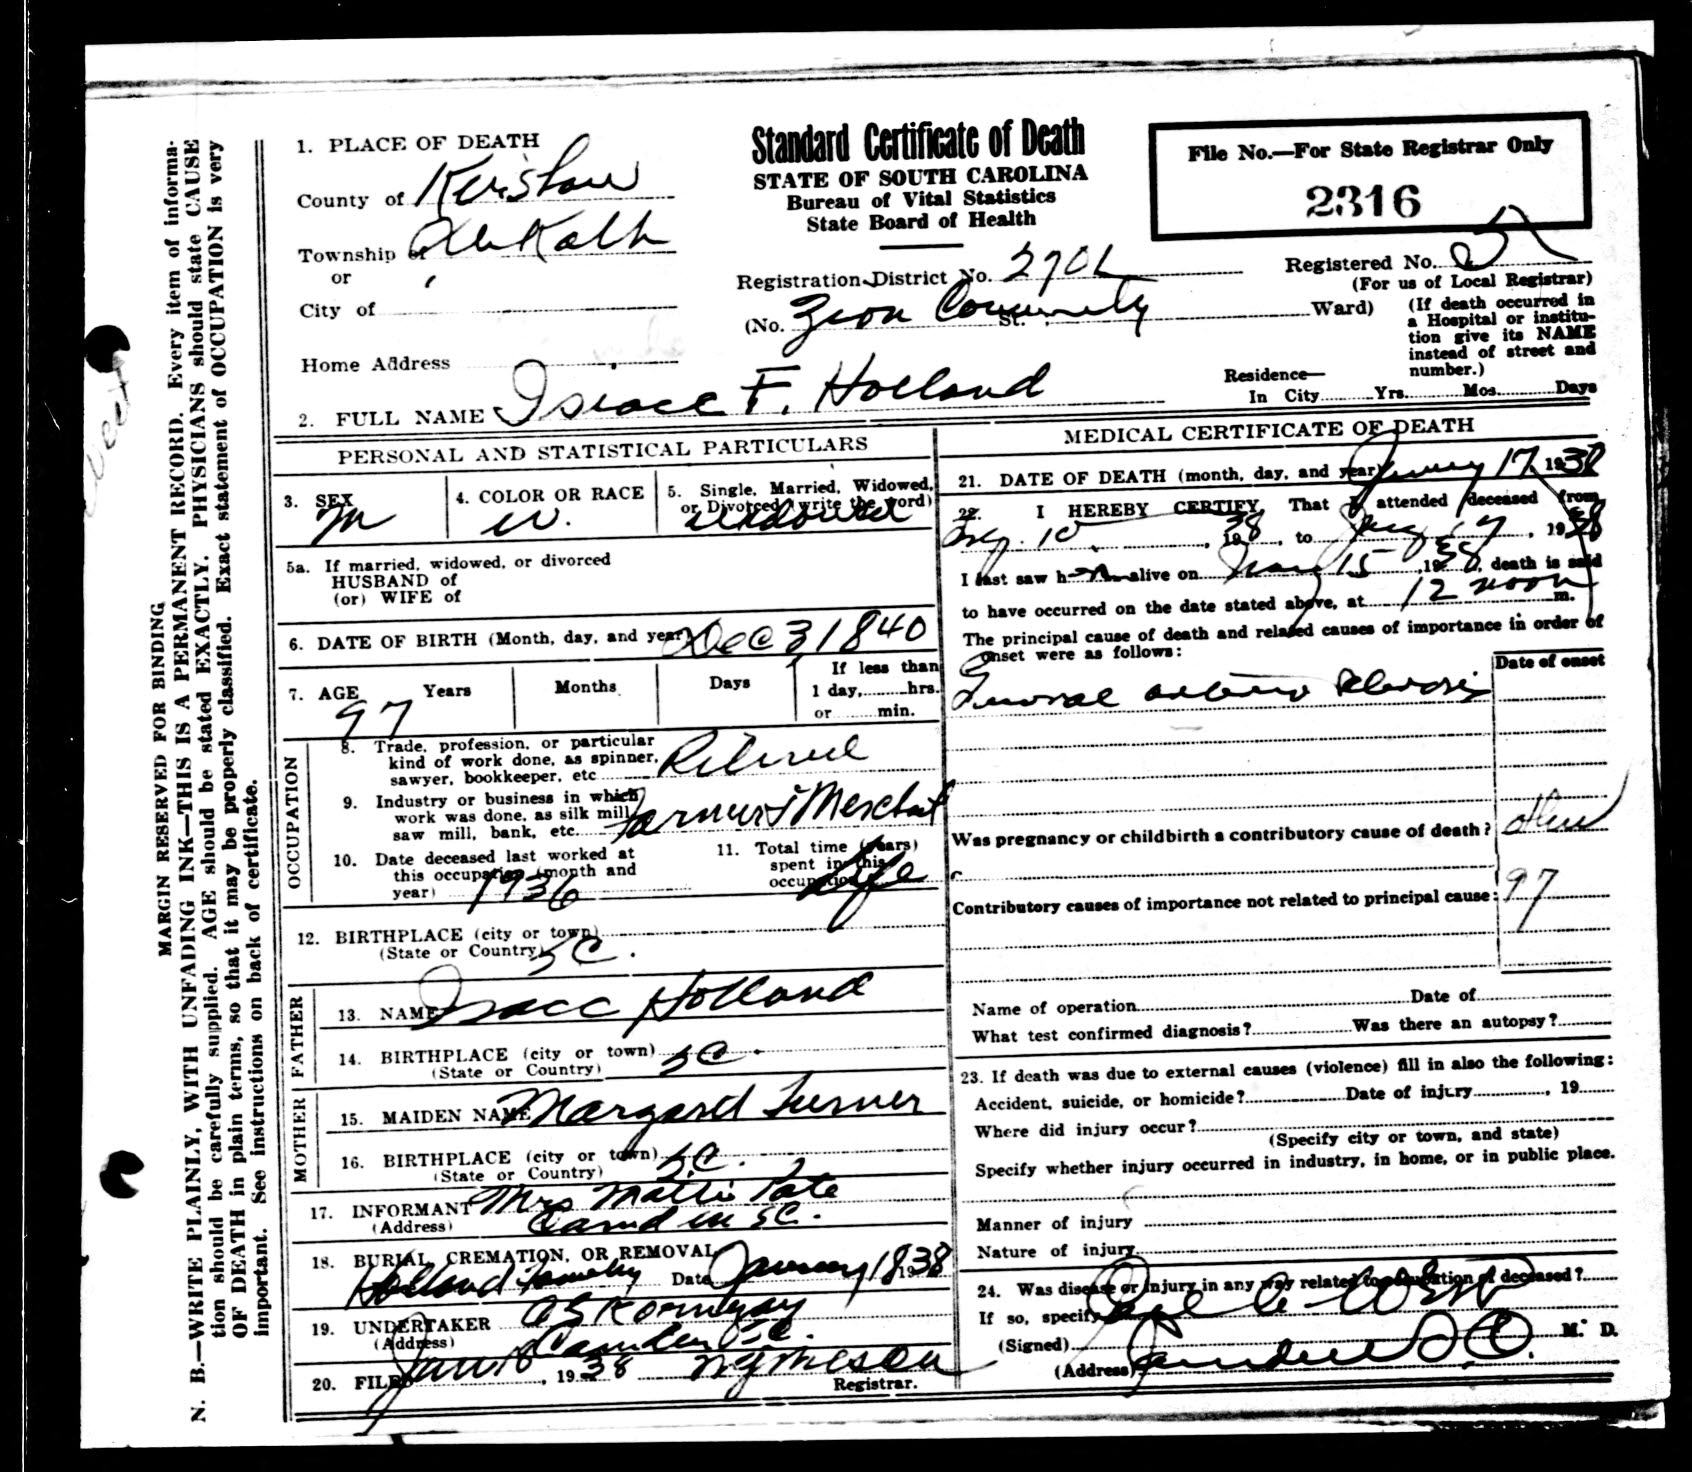 Standard Certificate of Death
STATE OF SOUTH CAROLINA
Bureau of Vital Statistics
State Board of Health
File No.—For State Registrar Only
2316
1. PLACE OF DEATH
County of Kershaw
Township of DeKalb
or
City of
Home Address
Registration District No. 2702
(No. Zion Community St. Ward)
Registered No.
(For us of Local Registrar)
(If death occurred in
a Hospital or institu-
tion give its NAME
instead of street and
number.)
Residence—
In City Yrs. Mos. Days
2. FULL NAME Isaac F. Holland
PERSONAL AND STATISTICAL PARTICULARS
3. SEX
M
4. COLOR OR RACE
W.
5. Single, Married, Widowed,
or Divorced (write the word)
Widowed
5a. If married, widowed, or divorced
HUSBAND of
(or) WIFE of
6. DATE OF BIRTH (Month, day, and year) Dec 3 1840
7. AGE Years Months Days
97
If less than
1 day, hrs.
or min.
OCCUPATION
8. Trade, profession, or particular
kind of work done, as spinner,
sawyer, bookkeeper, etc Retired
9. Industry or business in which
work was done, as silk mill,
saw mill, bank, etc. Farmer & Merchant
10. Date deceased last worked at
this occupation (month and
year) 1936
11. Total time (years)
spent in this
occupation Life
12. BIRTHPLACE (city or town)
(State or Country) SC.
FATHER
13. NAME Isacc Holland
14. BIRTHPLACE (city or town) SC.
(State or Country)
MOTHER
15. MAIDEN NAME Margard Turner
16. BIRTHPLACE (city or town) S.C.
(State or Country)
17. INFORMANT Mrs Mattie Pate
(Address) Camden SC.
18. BURIAL, CREMATION, OR REMOVAL
Holland Family Date January 18 1938
19. UNDERTAKER
(Address) Camden S.C.
20. FILED Jan 18, 1938
Registrar.
MEDICAL CERTIFICATE OF DEATH
21. DATE OF DEATH (month, day, and year) January 17, 1938
22. I HEREBY CERTIFY, That I attended deceased from
10, 1938, to Jany 17, 1938
I last saw him alive on Jany 15, 1938, death is said
to have occurred on the date stated above, at 12 noon m.
The principal cause of death and related causes of importance in order of
onset were as follows:
Date of onset
General arterio sclerosis
Was pregnancy or childbirth a contributory cause of death?
97
Contributory causes of importance not related to principal cause:
Name of operation Date of
What test confirmed diagnosis? Was there an autopsy?
23. If death was due to external causes (violence) fill in also the following:
Accident, suicide, or homicide? Date of injury , 19
Where did injury occur?
(Specify city or town, and state)
Specify whether injury occurred in industry, in home, or in public place.
Manner of injury
Nature of injury
24. Was disease or injury in any way related to occupation of deceased?
If so, specify
(Signed) M. D.
(Address) Camden S.C.
MARGIN RESERVED FOR BINDING
N. B.—WRITE PLAINLY, WITH UNFADING INK—THIS IS A PERMANENT RECORD. Every item of informa-
tion should be carefully supplied. AGE should be stated EXACTLY. PHYSICIANS should state CAUSE
OF DEATH in plain terms, so that it may be properly classified. Exact statement of OCCUPATION is very
important. See instructions on back of certificate.